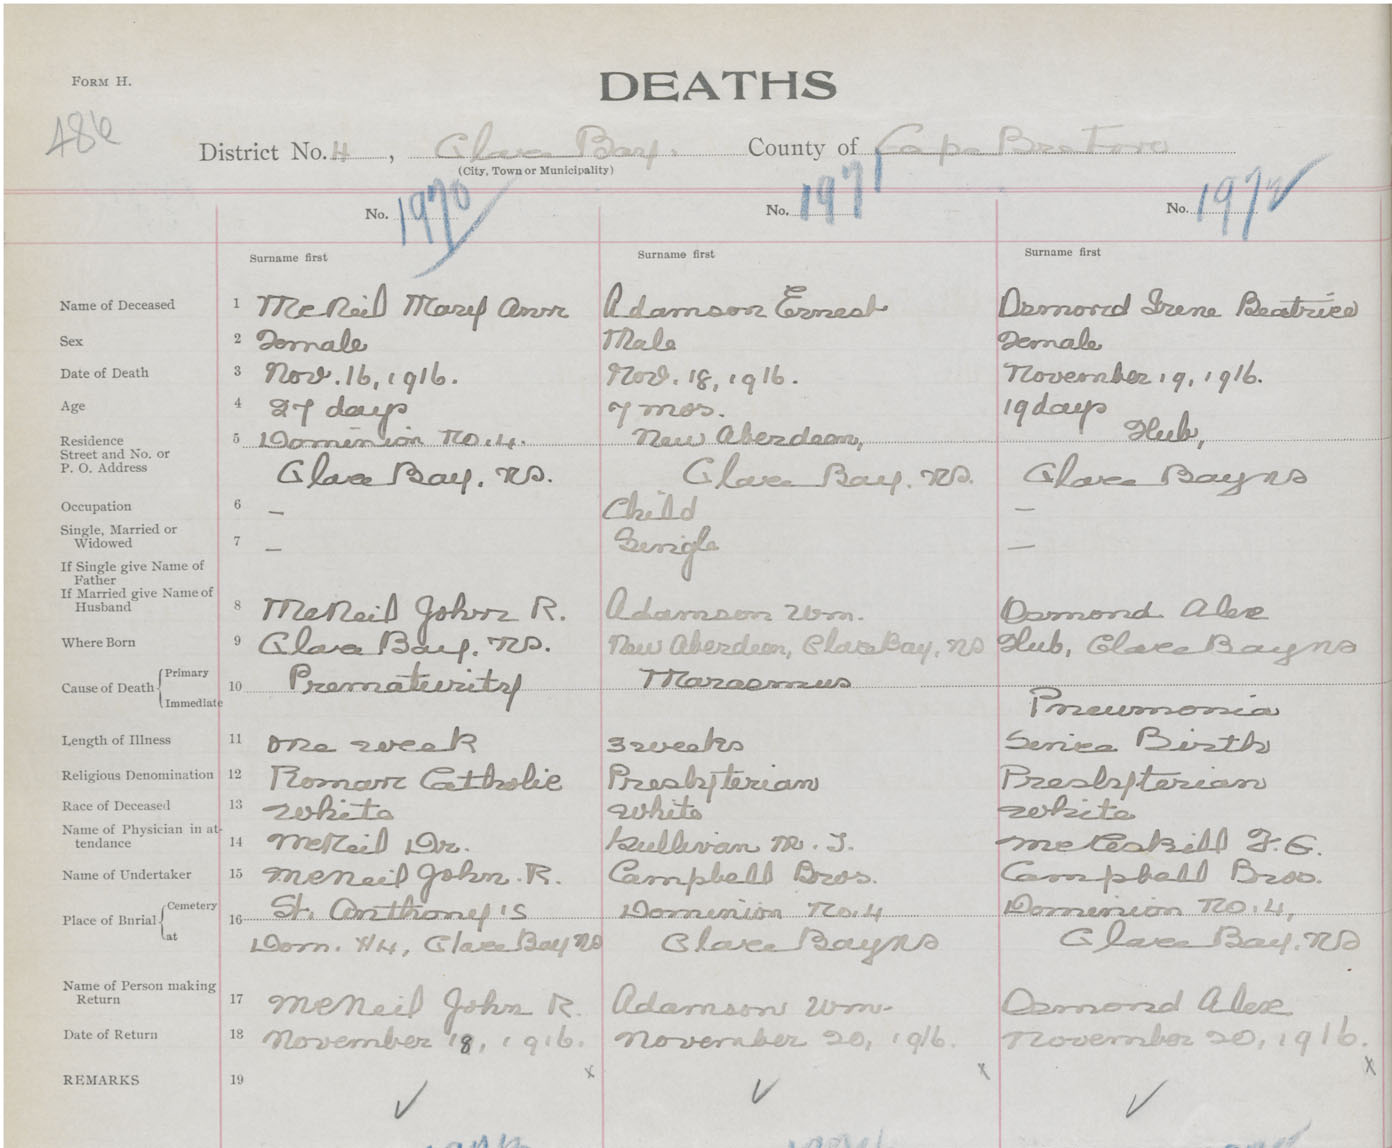 FORM H.
DEATHS
486
District No. 4, Glace Bay. County of Cape Breton
(City, Town or Municipality)
No. 1970 No. 1971 No. 1972
Surname first Surname first Surname first
Name of Deceased 1 McNeil Mary Ann Adamson Ernest Osmond Irene Beatrice
Sex 2 Female Male Female
Date of Death 3 Nov. 16, 1916. Nov. 18, 1916. November 19, 1916.
Age 4 27 days 7 mos. 19 days
Residence 5 Dominion No. 4. New Aberdeen, Hub,
Street and No. or
P. O. Address Glace Bay, NS. Glace Bay, NS. Glace Bay NS
Occupation 6 — Child —
Single, Married or
Widowed 7 — Single —
If Single give Name of
Father
If Married give Name of
Husband 8 McNeil John R. Adamson Wm. Osmond Alex
Where Born 9 Glace Bay, NS. New Aberdeen, Glace Bay, NS Hub, Glace Bay NS
Cause of Death Primary 10 Prematurity Marasmus
Immediate Pneumonia
Length of Illness 11 One week 3 weeks Since Birth
Religious Denomination 12 Roman Catholic Presbyterian Presbyterian
Race of Deceased 13 White White White
Name of Physician in at-
tendance 14 McNeil Dr. Sullivan M. T. McAskill F. G.
Name of Undertaker 15 McNeil John R. Campbell Bros. Campbell Bros.
Place of Burial Cemetery 16 St. Anthony's Dominion No. 4 Dominion No. 4,
at Dom. #4, Glace Bay NS Glace Bay NS Glace Bay, NS
Name of Person making
Return 17 McNeil John R. Adamson Wm. Osmond Alex
Date of Return 18 November 18, 1916. November 20, 1916. November 20, 1916.
REMARKS 19